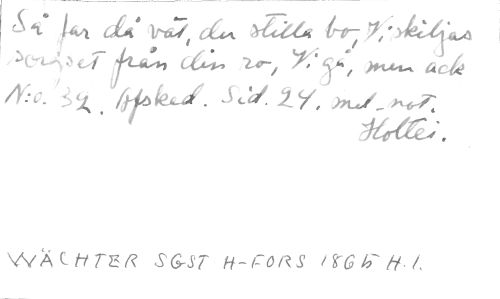 Så far då väl, du stilla bo, Vi skiljas
sorgset från din ro, Vi gå, men ack
N:o. 32. Afsked. Sid. 24. med not.
Holtei.
WÄCHTER SGST H-FORS 1865 H.1.